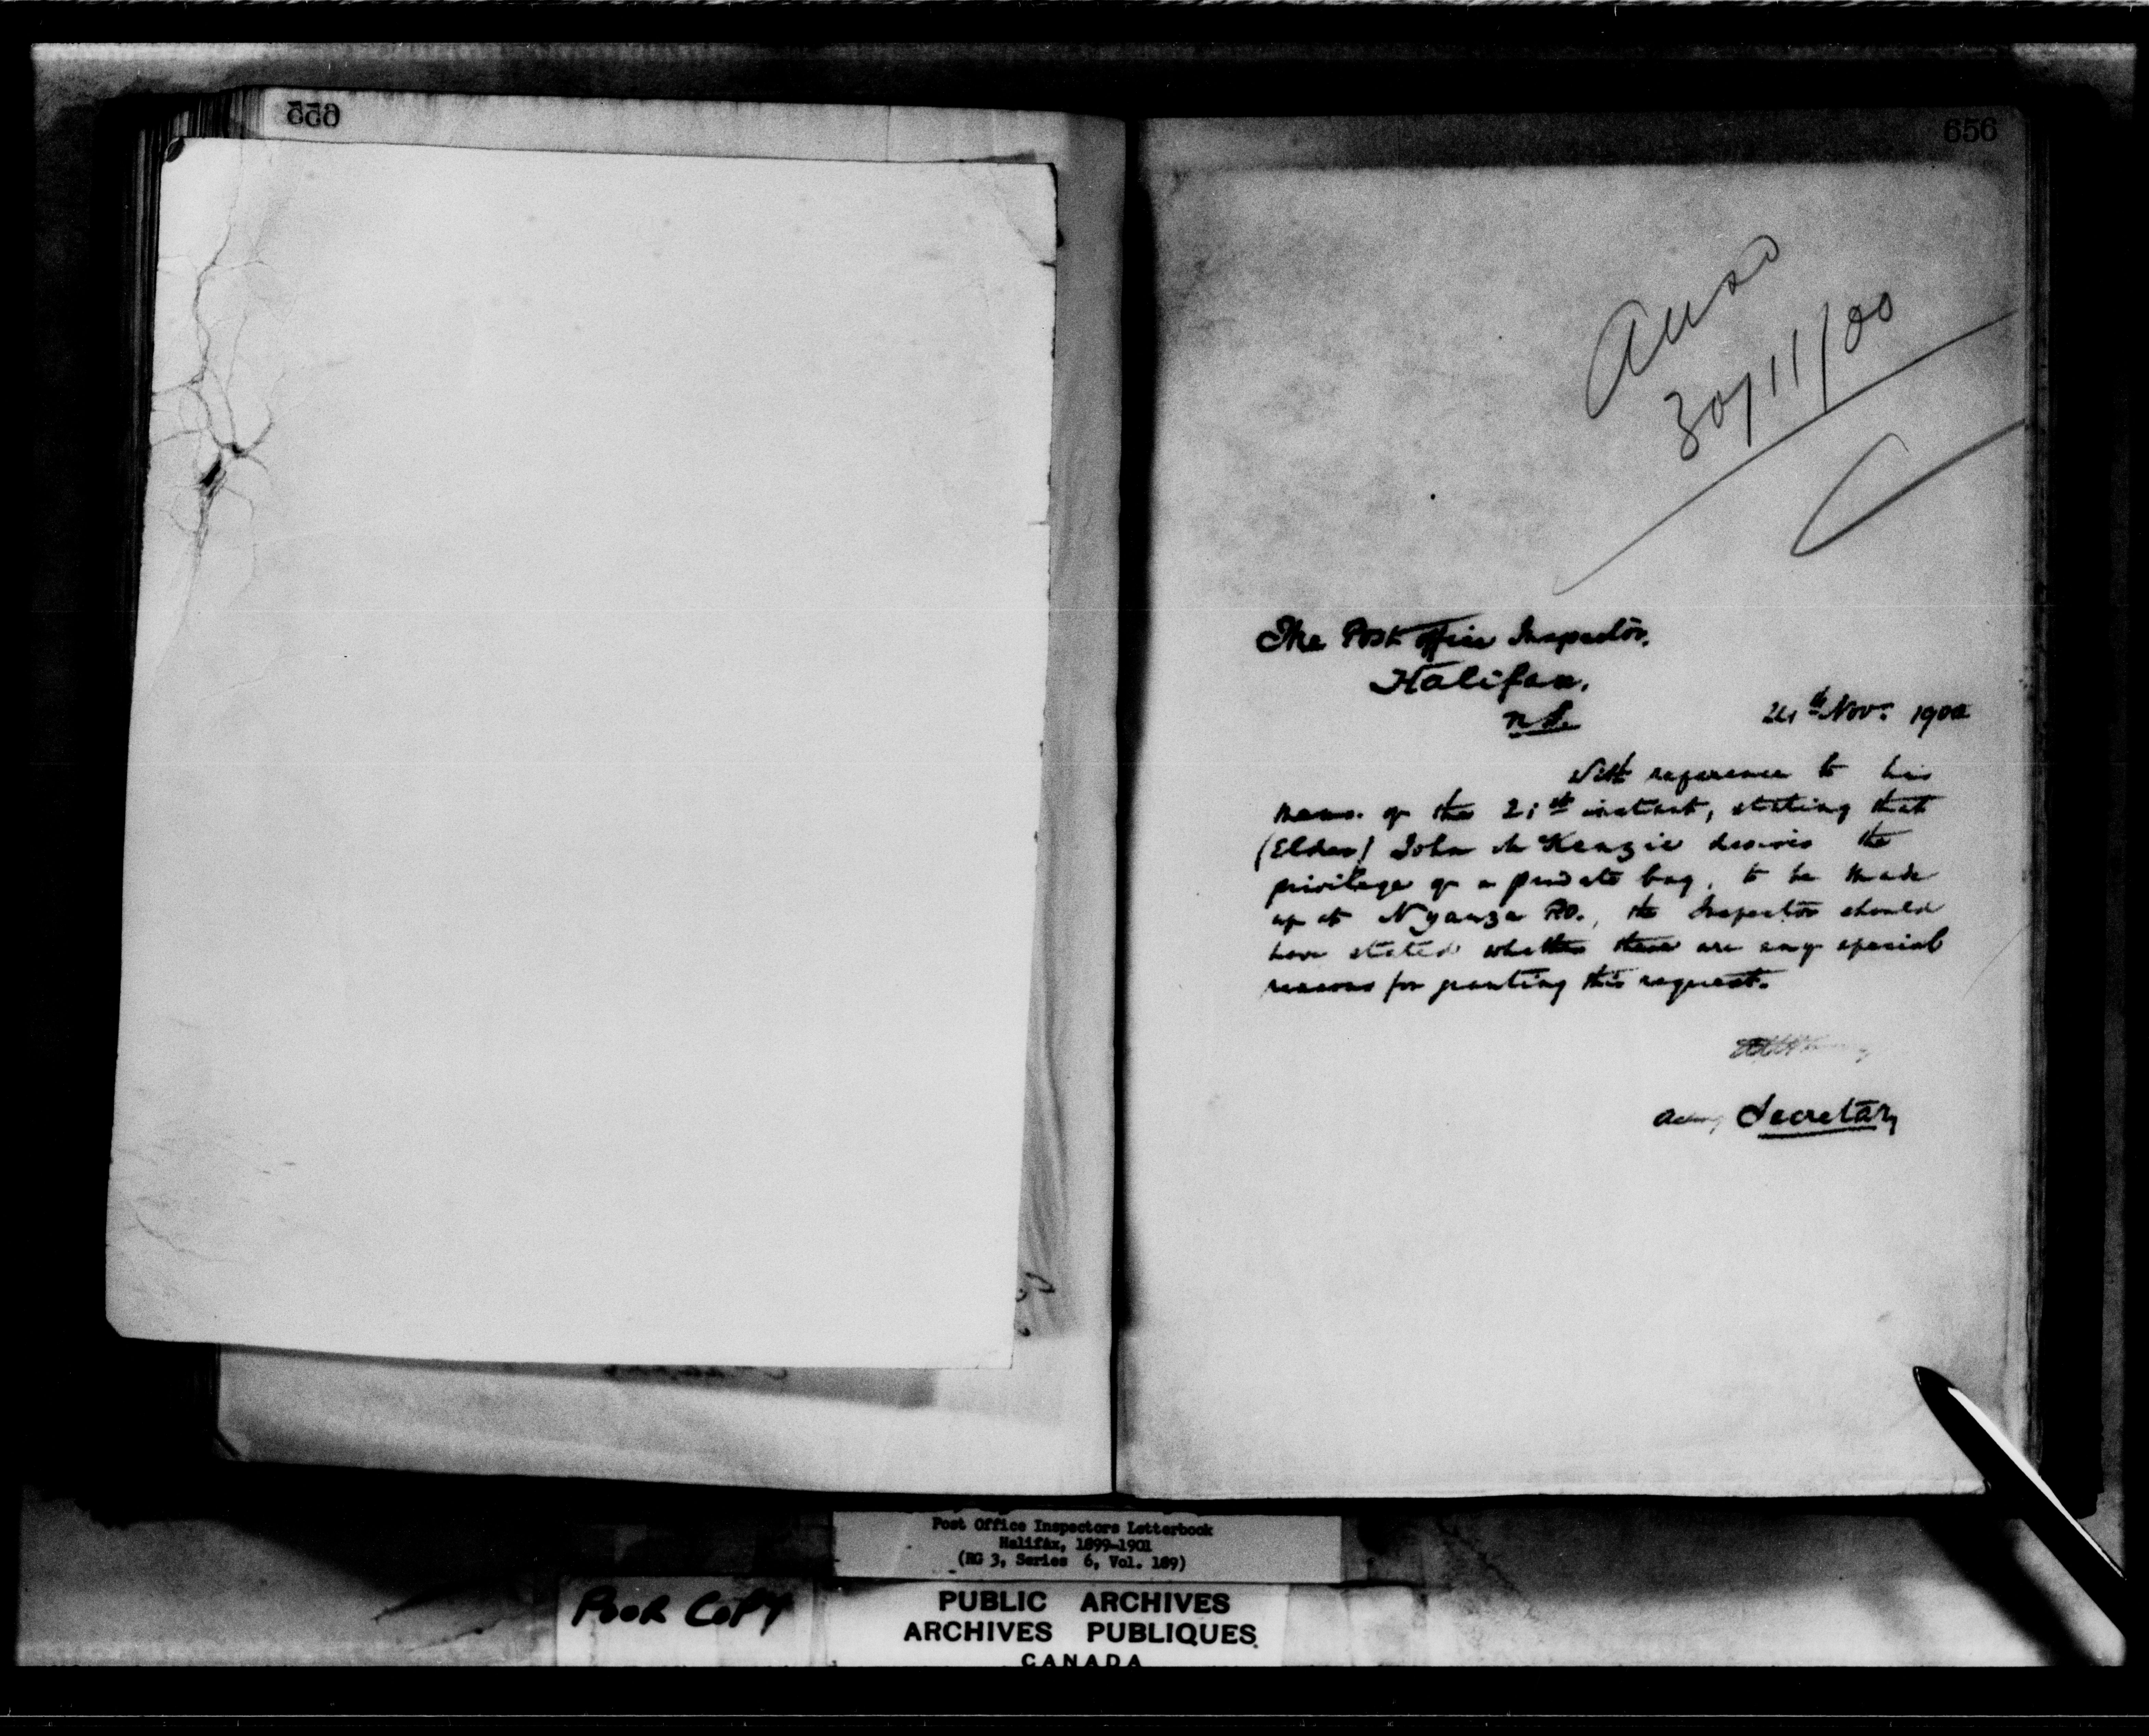 655
656
Ansd
30/11/00
The Post Office Inspector,
Halifax,
N.S.
24th Nov. 1900
With reference to his
memo. of the 21st instant, stating that
(Elder) John McKenzie desires the
privilege of a private bag, to be made
up at Nyanza P.O., the Inspector should
have stated whether there are any special
reasons for granting this request.
Acting Secretary
Post Office Inspectors Letterbook
Halifax, 1899-1901
(RG 3, Series 6, Vol. 189)
POOR COPY
PUBLIC ARCHIVES
ARCHIVES PUBLIQUES
CANADA